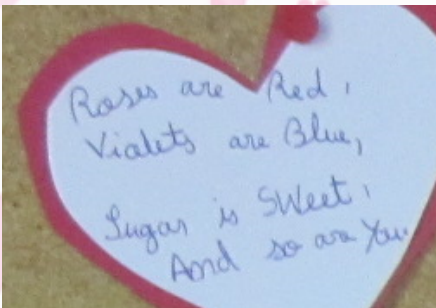 Roses are Red,
Vialets are Blue,
Sugar is SWeet,
And so are You.